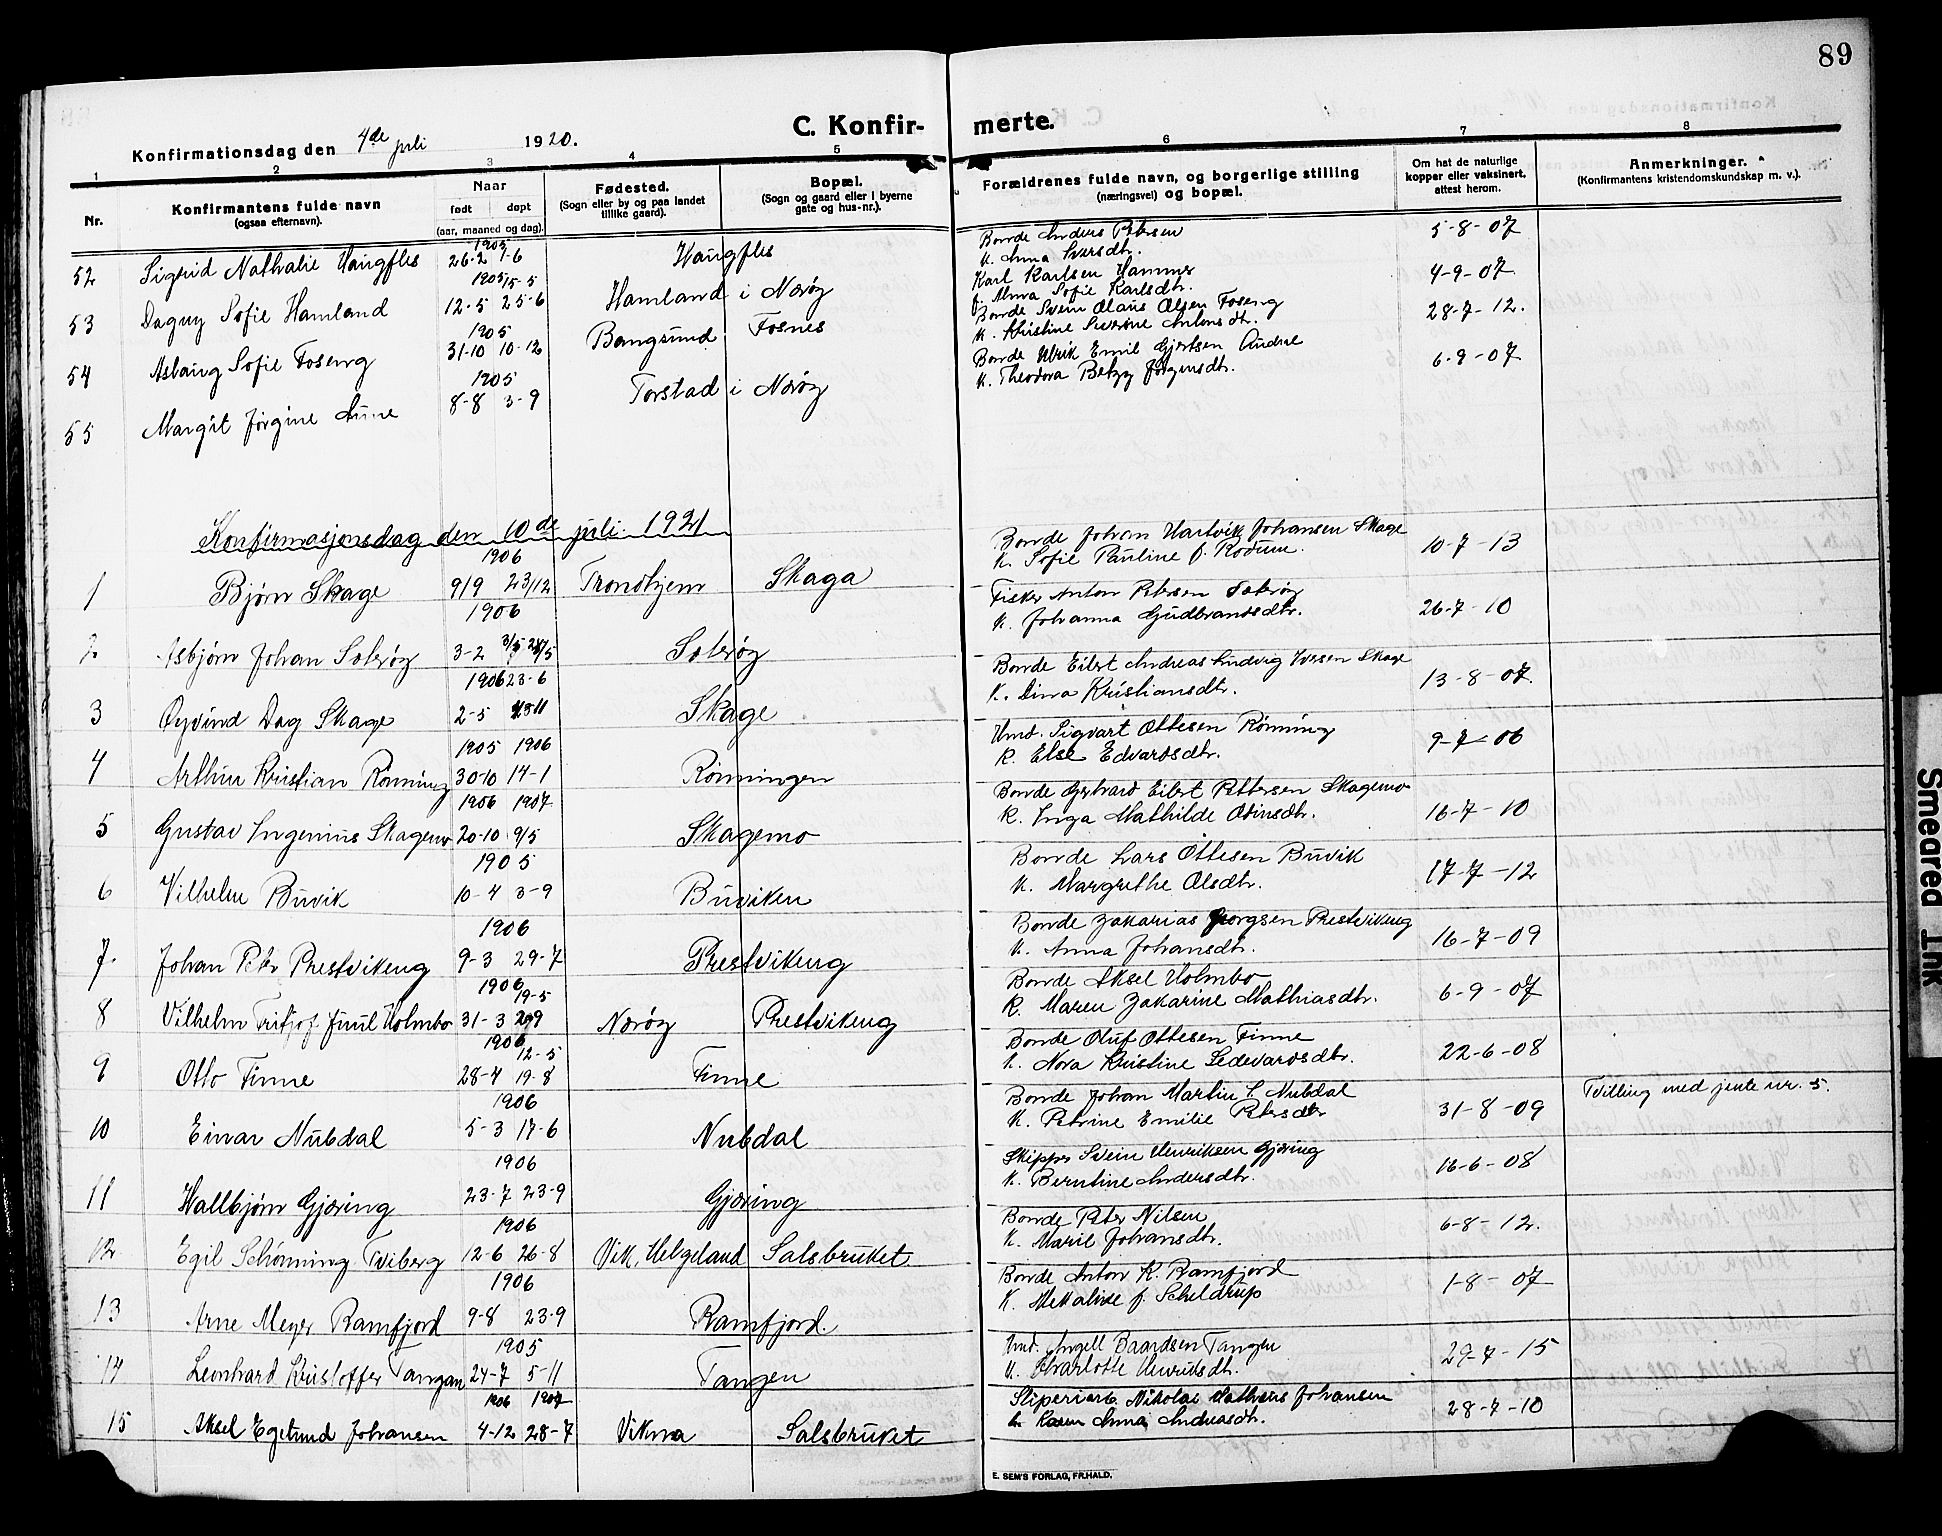 89
C. Konfir- merte.
Konfirmationsdag den 4de juli 1920.
1 2 3 4 5 6 7 8
Nr.
Konfirmantens fulde navn
(ogsaa efternavn).
Naar
født døpt
(aar, maaned og dag).
Fødested.
(Sogn eller by og paa landet
tillike gaard).
Bopæl.
(Sogn og gaard eller i byerne
gate og hus-nr.).
Forældrenes fulde navn, og borgerlige stilling
(næringsvei) og bopæl.
Om hat de naturlige
kopper eller vaksinert,
attest herom.
Anmerkninger.
(Konfirmantens kristendomskundskap m. v.).
1905
52 Sigrid Nathalie Haugfles 26-2 1-6 Haugfles Bonde Anders Petersen 5-8-07
K. Anna Iversdtr.
1905 15-5
53 Dagny Sofie Hamland 12-5 25-6 Hamland i Nærøy Karl Karlsen Hammer 4-9-07
f. Anna Sofie Karlsdtr.
1905
54 Aslaug Sofie Foseng 31-10 10-12 Bangsund Fosnes Bonde Svein Olaus Olsen Foseng 28-7-12.
K. Kristine Severine Antonsdtr.
1905
55 Margit Jørgine Aune 8-8 3-9 Torstad i Nærøy Bonde Ulrik Emil Gjertsen 6-9-07
K. Theodora Betzy Jørgensdtr.
Konfirmasjonsdag den 10de juli 1921
1906
1 Bjørn Skage 9/9 23/12 Trondhjem Skaga Bonde Johan Hartvik Johansen Skage 10-7-13
K. Sofie Pauline f. Rodum.
1906
2. Asbjørn Johan Solsrøy 3-2 3/5 Solsrøy Fisker Anton Petersen 26-7-10
K. Johanna Gudbrandsdtr.
1906 23-6
3 Øyvind Dag Skage 2-5 Skage Bonde Eilert Andreas Ludvig Iversen Skage 13-8-07.
K. Dina Kristiansdtr.
1905 1906
4 Arthur Kristian Rønning 30-10 14-1 Rønningen Umd. Sigvart Ottesen Rønning 9-7-06
K. Else Edvardsdtr.
1906 1907
5 Gustav Ingenius Skagemo 20-10 9/5 Skagemo Bonde Gerhard Eilert Pettersen Skagemo 16-7-10
K. Inga Mathilde Odinsdtr.
1905
6 Vilhelm Buvik 10-4 3-9 Buviken Bonde Lars Ottesen Buvik 17-7-12
K. Margrethe Olsdtr.
1906
7. Johan Petr Prestvikeng 9-3 29-7 Prestvikeng Bonde Zakarias Prestvikeng 16-7-09
K. Anna Johansdtr.
1906 19-5
8 Vilhelm Fritjof Juul Holmbo 31-3 Nærøy Prestvikeng Bonde Aksel Holmbo 6-9-07
K. Maren Zakarine Mathiasdtr.
1906 12-5
9 Otto Finne 28-4 19-8 Finne Bonde Oluf Ottesen Finne 22-6-08
K. Nora Kristine Sedevardsdtr.
1906
10 Einar Nubdal 5-3 17-6 Nubdal Bonde Johan Martin L Nubdal 31-8-09 Tvilling med jente nr. 5.
K. Petrine Emilie Petersdtr
1906
11 Hallbjørn Gjæring 23-7 23-9 Gjæring Skipper Svein Henriksen Gjæring 16-6-08
K. Berntine Andersdtr.
1906
12 Egil Schønning Tviberg 12-6 26-8 Vik, Helgeland Salsbruket Bonde Peter Nilsen 6-8-12.
K. Marie Johansdtr.
1906
13 Arne Meyer Ramfjord 9-8 23-9 Ramfjord. Bonde Anton K. Ramfjord 1-8-07
K. Metaline f. Scheldrup
1905
14 Leonhard Kristoffer Tangen 24-7 5-11 Tangen Umd. Angell Baardsen Tangen 29-7-15
K. Charlotte Henriksdtr.
1906 1907
15 Aksel Egelund Johansen 4-12 28-7 Vikna Salsbruket Sliperiarb. Nikolai Johansen 28-7-10
Karen Anna Andreasdtr.
E. SEM'S FORLAG, FR.HALD.
Smeared Ink